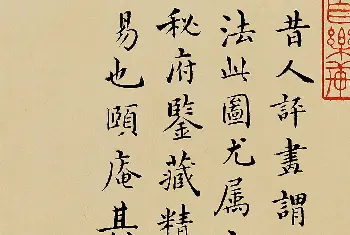 昔人評畫謂
法此圖尤属
秘府鑒藏精
易也頤庵其